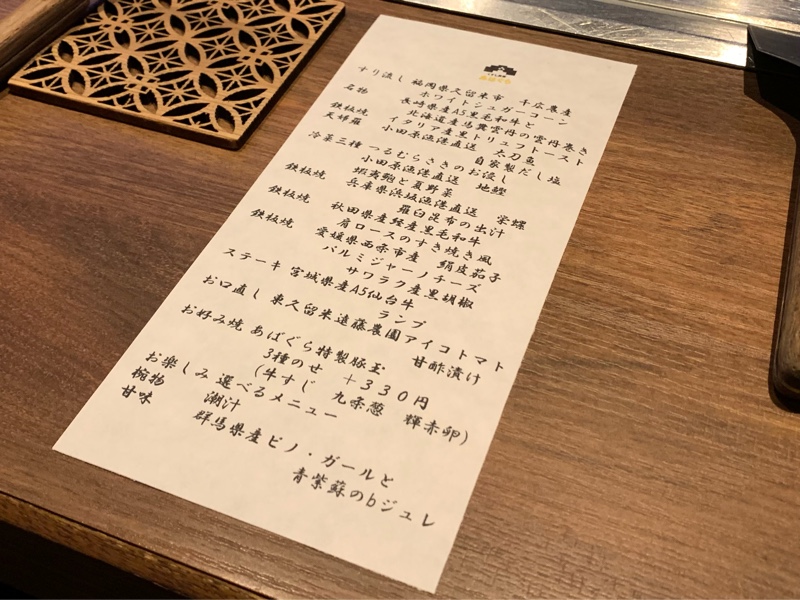 すり流し 福岡県久留米市 千広農産
ホワイトシュガーコーン
名物 長崎県産A5黒毛和牛と
北海道産馬糞雲丹の雲丹巻き
鉄板焼 イタリア産黒トリュフトースト
天婦羅 小田原漁港直送 太刀魚
自家製だし塩
冷菜三種 つるむらさきのお浸し
小田原漁港直送 地鰹
蝦夷鮑と夏野菜
鉄板焼 兵庫県浜坂漁港直送 栄螺
羅臼昆布の出汁
鉄板焼 秋田県産経産黒毛和牛
肩ロースのすき焼き風
鉄板焼 愛媛県西条市産 絹皮茄子
パルミジャーノチーズ
サワラク産黒胡椒
ステーキ 宮城県産A5仙台牛
ランプ
お口直し 東久留米遠藤農園アイコトマト
甘酢漬け
お好み焼 あばぐら特製豚玉
3種のせ +330円
(牛すじ 九条葱 輝赤卵)
お楽しみ 選べるメニュー
椀物 潮汁
甘味 群馬県産ピノ・ガールと
青紫蘇のbジュレ